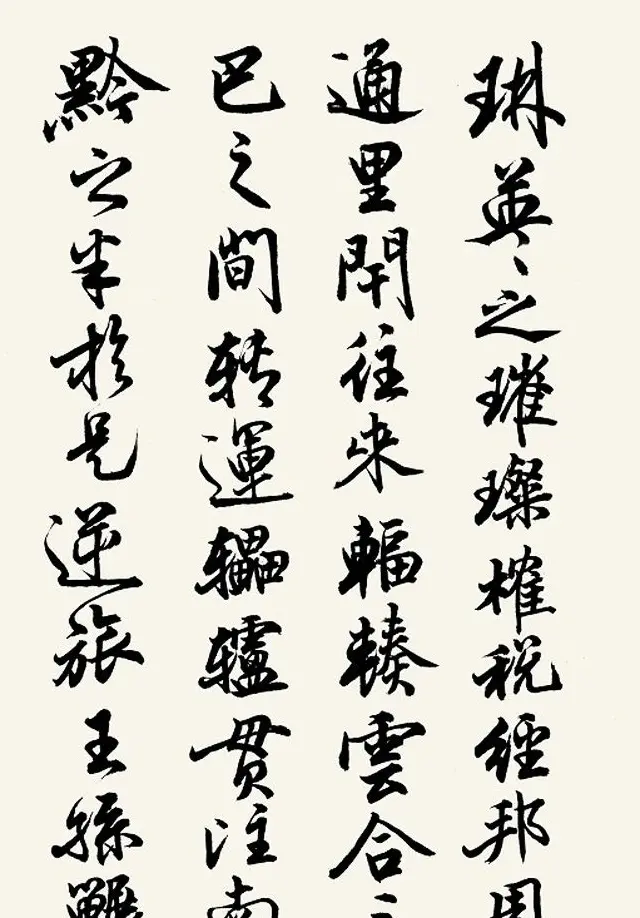 琳英々之璀璨榷税經邦
通里閈往來輻輳雲合
巴之間轉運轠轤貫注南
黔之半於是逆旅王孫